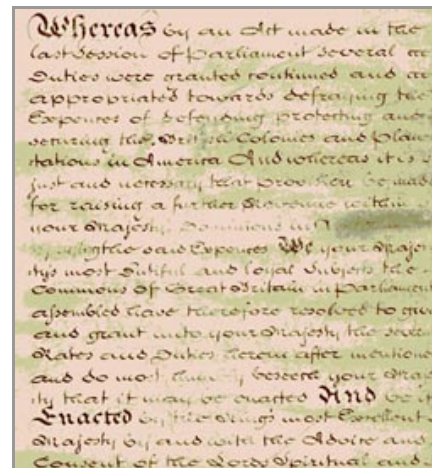 Whereas by an Act made in the
last Session of Parliament several
Duties were granted continued and
appropriated towards defraying the
Expences of defending protecting and
securing the British Colonies and Plan
tations in America And whereas it is
just and necessary that provision be made
for raising a further Revenue within
your Majesty's Dominions in
the said Expences We your Majes
ty's most Dutiful and loyal Subjects the
Commons of Great Britain in Parliament
assembled have therefore resolved to give
and grant unto your Majesty the
Rates and Duties herein after mentione
and do most beseech your Maj
ty that it may be enacted And be it
Enacted by the Kings most Excellent
Majesty by and with the Advice and
Consent of the Lords Spiritual and